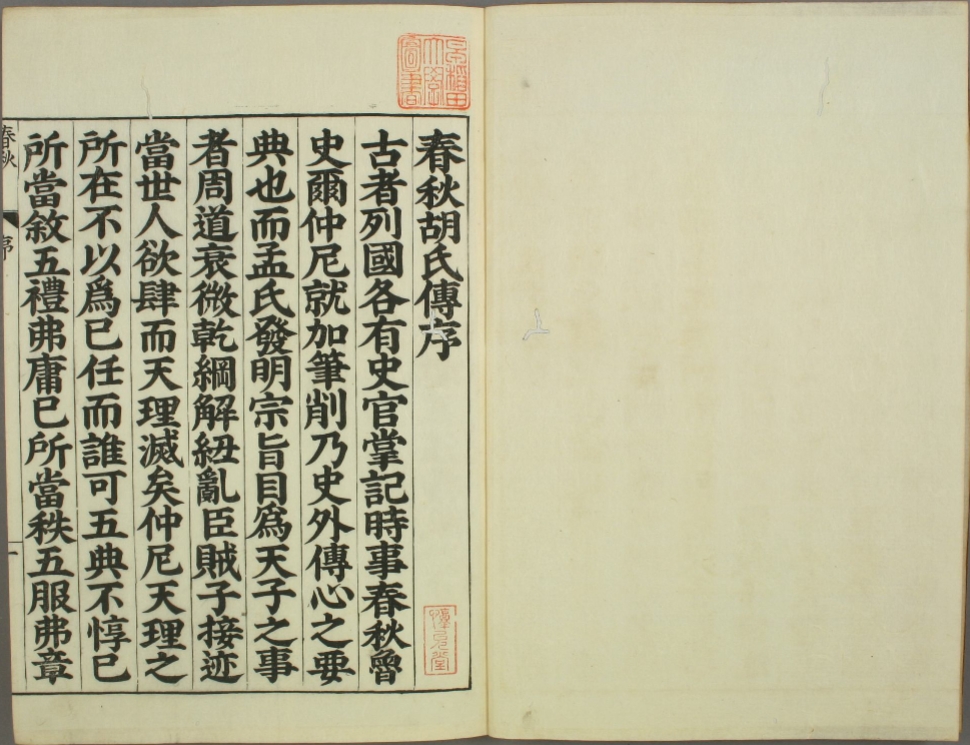 春秋胡氏傳序
古者列國各有史官掌記時事春秋魯
史爾仲尼就加筆削乃史外傳心之要
典也而孟氏發明宗旨目爲天子之事
者周道衰微乾綱解紐亂臣賊子接迹
當世人欲肆而天理滅矣仲尼天理之
所在不以爲已任而誰可五典不惇已
所當敘五禮弗庸已所當秩五服弗章
春秋
序
一
早稻田
大學
圖書